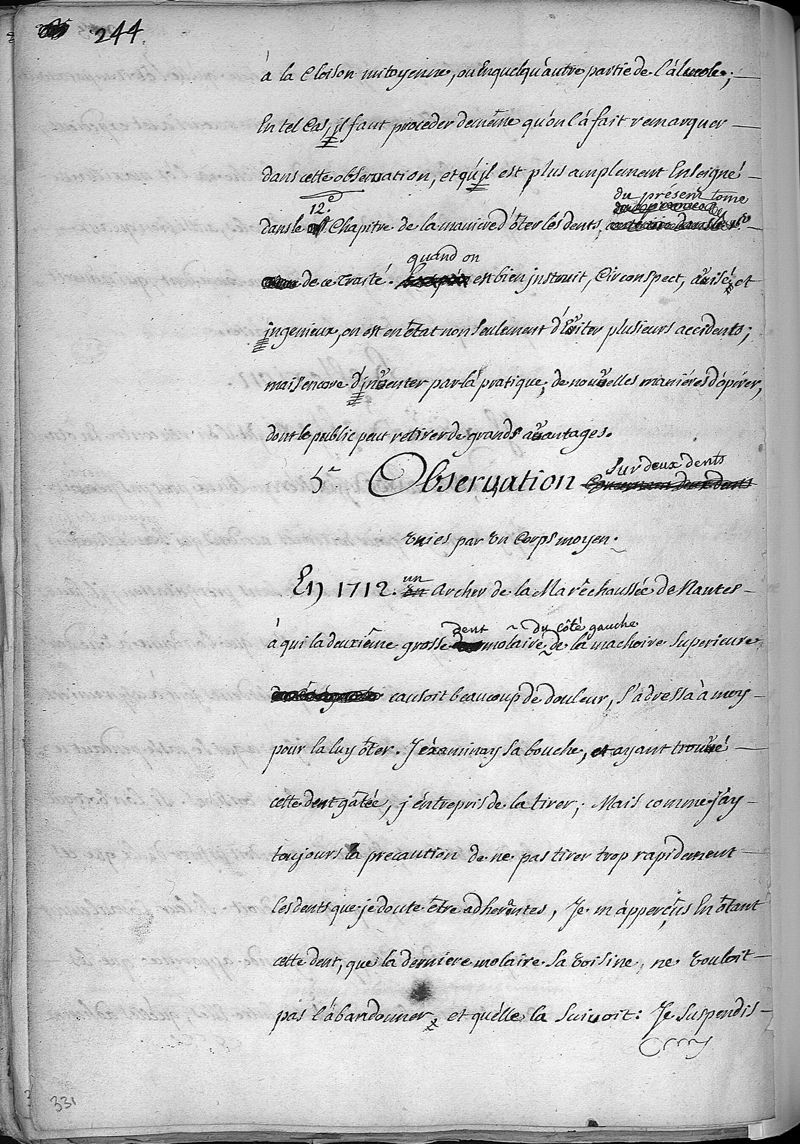 244
à la Cloison mitoyenne, ou en quelqu'autre partie de l'álveole;
En tel Cas, il faut procéder de même qu'on l'a fait remarquer
dans cette observation, et qu'il est plus amplement Enseigné
12.e du présent tome
dans le Chapitre de la maniere d'ôter les dents,
quand on
de ce Traité. est bien instruit, Circonspect, avisé et
ingenieux, on est en Etat non seulement d'Eviter plusieurs accidents;
mais encore d'inventer par la pratique, de nouvelles maniéres d'opérer,
dont le public peut retirer de grands avantages.
Sur deux dents
5.e Observation
unies par un Corps moyen.
un
En 1712. Archer de la Maréchaussée de Nantes
dent du côté gauche
à qui la deuxiéme grosse molaire de la machoire Superieure
causoit beaucoup de douleur, s'adressa à moy
pour la luy ôter. J'éxaminay sa bouche, et ayant trouvé
cette dent gâtée, j'entrepris de la tirer; Mais comme J'ay
toujours la precaution de ne pas tirer trop rapidement
les dents que je doute être adherentes, Je m'apperçus En ôtant
cette dent, que la derniere molaire sa voisine, ne vouloit
pas l'abandonner, et qu'elle la Suivoit: Je Suspendis
331